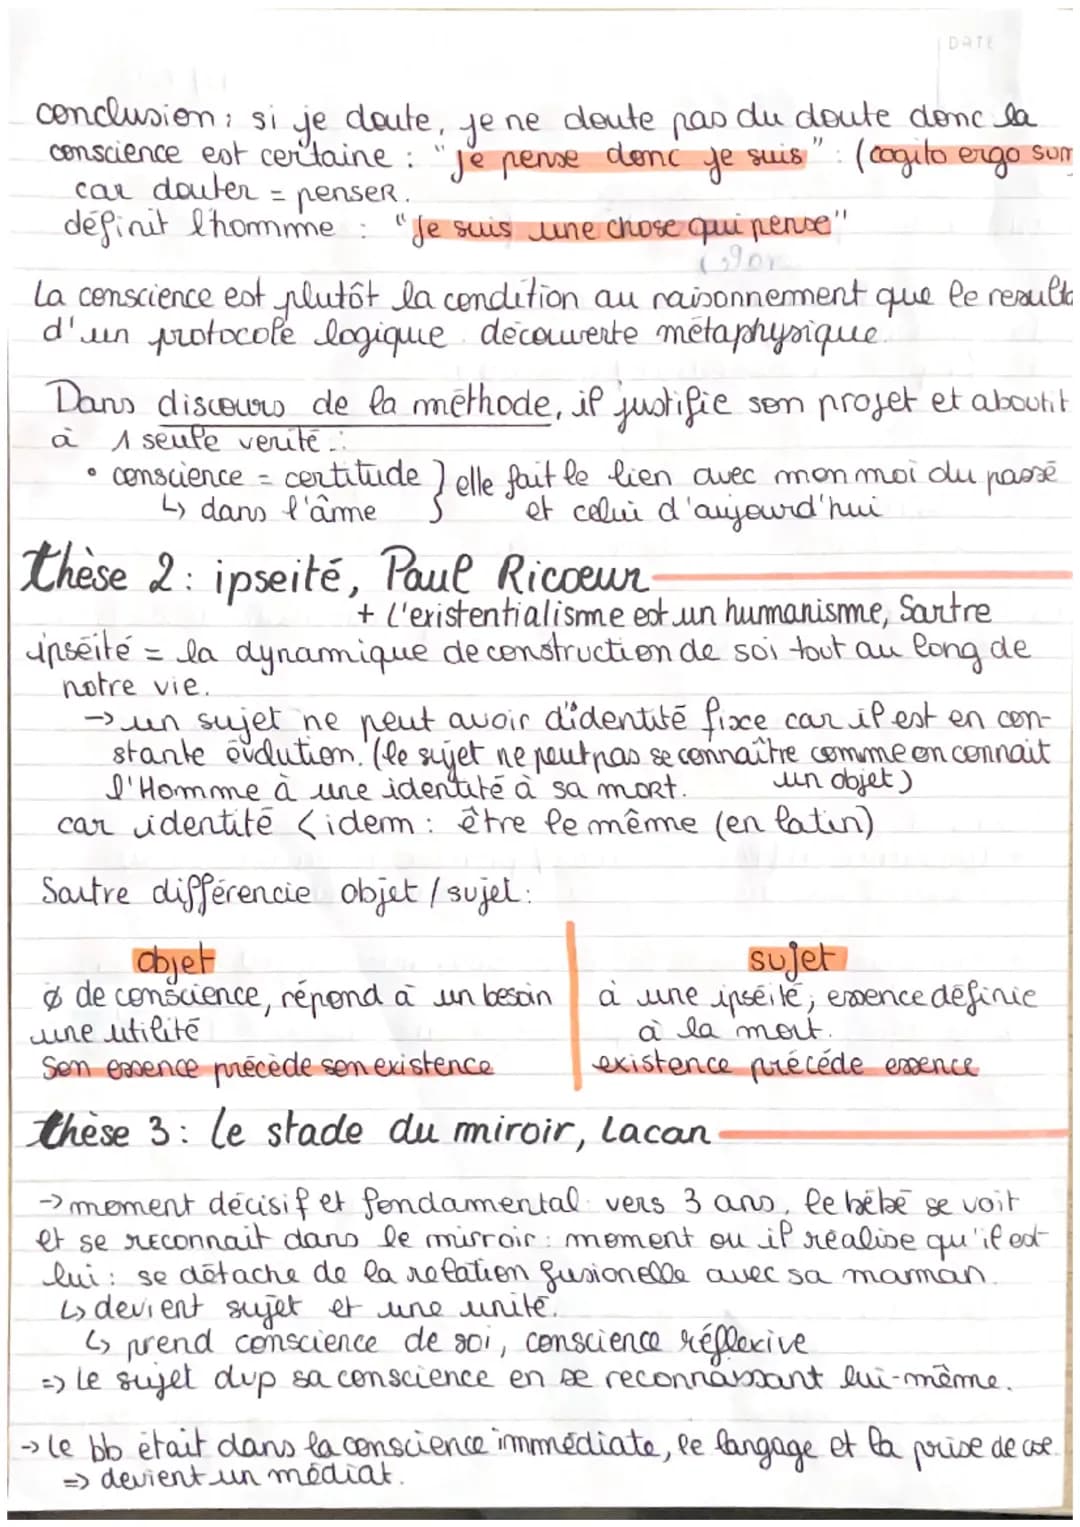 DATE
conclusion : si je doute, je ne doute pas du doute donc la
conscience est certaine : "je pense donc je suis" : (cogito ergo sum
car douter = penser.
définit l'homme : "Je suis une chose qui pense"
La conscience est plutôt la condition au raisonnement que le resulta
d'un protocole logique. découverte métaphysique.
Dans discours de la méthode, il justifie son projet et aboutit
à 1 seule verité :
• conscience = certitude } elle fait le lien avec mon moi du passé
↳ dans l'âme et celui d'aujourd'hui
thèse 2 : ipseité, Paul Ricoeur
+ L'existentialisme est un humanisme, Sartre
ipséité = la dynamique de construction de soi tout au long de
notre vie.
→ un sujet ne peut avoir d'identité fixe car il est en con-
stante évolution. (le sujet ne peut pas se connaître comme on connait
l'Homme à une identité à sa mort. un objet)
car identité < idem : être le même (en latin)
Sartre différencie objet / sujet :
objet
ø de conscience, répond à un besoin
une utilité
Son essence précède son existence
sujet
à une ipséité, essence définie
à la mort.
existence précéde essence
thèse 3 : le stade du miroir, Lacan
→ moment décisif et fondamental : vers 3 ans, le bébé se voit
et se reconnait dans le mirroir : moment ou il réalise qu'il est
lui : se détache de la relation fusionelle avec sa maman.
↳ devient sujet et une unité.
↳ prend conscience de soi, conscience réflexive
=> Le sujet dvp sa conscience en se reconnaissant lui-même.
→ le bb était dans la conscience immédiate, le langage et la prise de cse
=> devient un médiat.